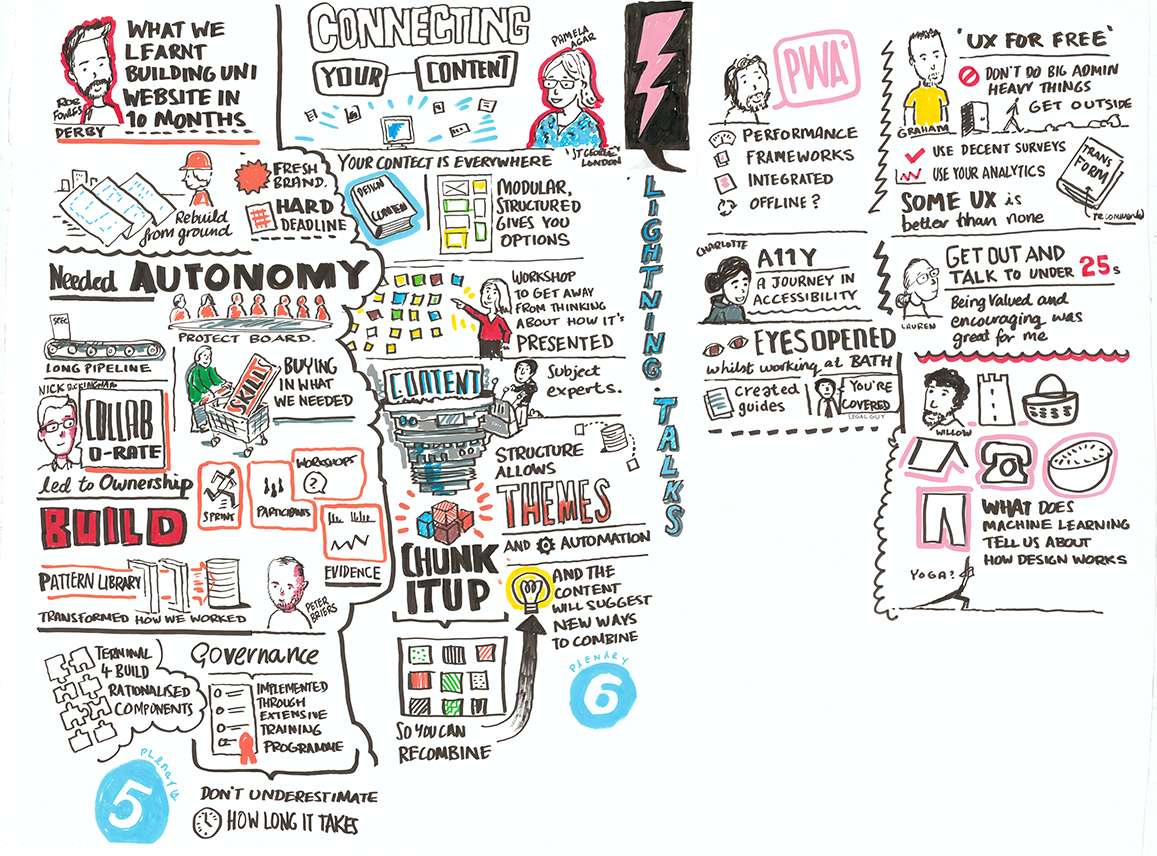 WHAT WE
LEARNT
BUILDING UNI
WEBSITE IN
10 MONTHS
ROB
FOWLES
DERBY
Rebuild
from ground
FRESH
BRAND.
HARD
DEADLINE
Needed AUTONOMY
PROJECT BOARD.
LONG PIPELINE
SKILLS
BUYING
IN WHAT
WE NEEDED
NICK
COLLAB
O-RATE
led to Ownership
SPRINT
PARTICIPANTS
WORKSHOPS
?
EVIDENCE
BUILD
PATTERN LIBRARY
TRANSFORMED HOW WE WORKED
PETER
BRIERS
TERMINAL
4 BUILD
RATIONALISED
COMPONENTS
Governance
IMPLEMENTED
THROUGH
EXTENSIVE
TRAINING
PROGRAMME
PLENARY
5
DON'T UNDERESTIMATE
HOW LONG IT TAKES
CONNECTING
YOUR CONTENT
PAMELA
AGAR
ST GEORGE'S
LONDON
YOUR CONTECT IS EVERYWHERE
DESIGN
CONTENT
MODULAR,
STRUCTURED
GIVES YOU
OPTIONS
WORKSHOP
TO GET AWAY
FROM THINKING
ABOUT HOW IT'S
PRESENTED
CONTENT
Subject
experts.
STRUCTURE
ALLOWS
THEMES
AND AUTOMATION
CHUNK
IT UP
SO YOU CAN
RECOMBINE
AND THE
CONTENT
WILL SUGGEST
NEW WAYS
TO COMBINE
PLENARY
6
LIGHTNING TALKS
PWA's
PERFORMANCE
FRAMEWORKS
INTEGRATED
OFFLINE?
CHARLOTTE
A11Y
A JOURNEY IN
ACCESSIBILITY
EYES OPENED
whilst working at BATH
created
guides
YOU'RE
COVERED
LEGAL GUY
'UX FOR FREE'
GRAHAM
DON'T DO BIG ADMIN
HEAVY THINGS
GET OUTSIDE
USE DECENT SURVEYS
USE YOUR ANALYTICS
SOME UX is
better than none
TRANS
FORM
RECOMMEND
LAUREN
GET OUT AND
TALK TO UNDER 25s
Being valued and
encouraging was
great for me
WILLOW
WHAT DOES
MACHINE LEARNING
TELL US ABOUT
HOW DESIGN WORKS
YOGA?